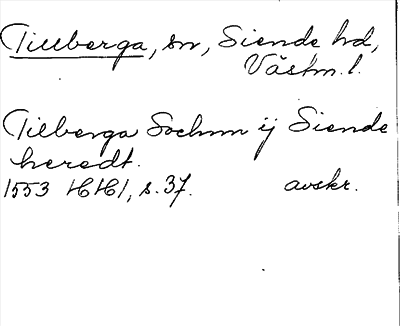 Tillberga, sn, Siende hd,
Västm. l.
Tilberga Sochnn ij Siende
heredt.
1553 HH1, s. 37. avskr.